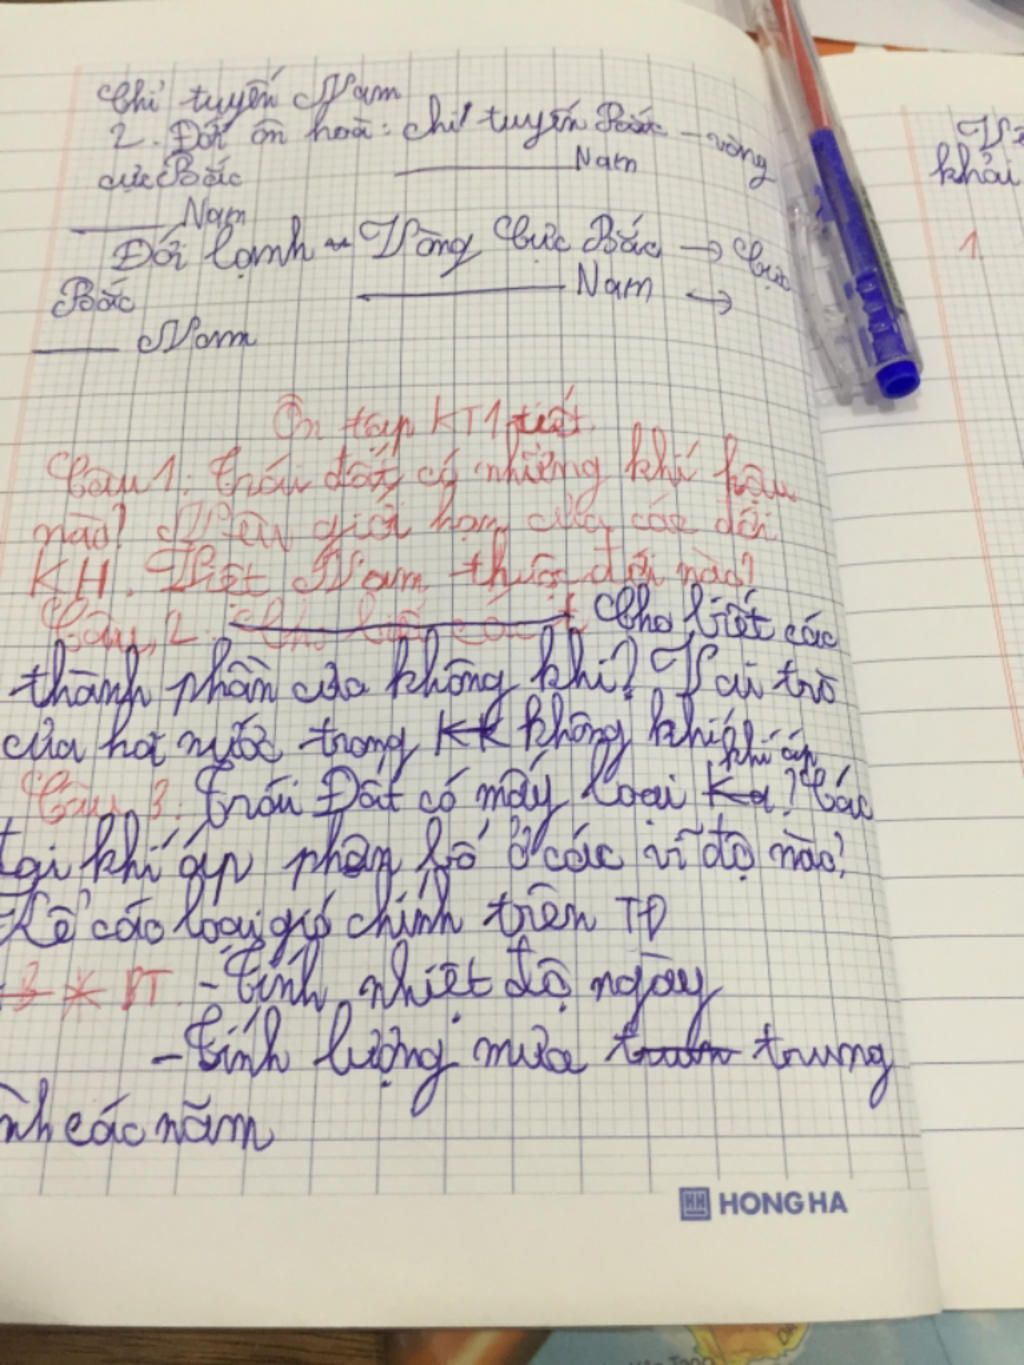 Chí tuyến Nam
2. Đới ôn hoà: chí tuyến Bắc - vòng
cực Bắc ______ Nam
______ Nam
Đới lạnh ~ Vòng Cực Bắc → Cực
Bắc ______ Nam →
______ Nam
Ôn tập KT 1 tiết
Câu 1: Trái đất có những khí hậu
nào? Nêu giới hạn của các đới
KH. Việt Nam thuộc đới nào?
Câu 2: Cho biết các Cho biết các
thành phần của không khí? Vai trò
của hơi nước trong KK không khí
khí áp
Câu 3: Trái Đất có mấy loại Ka? Các
đai khí áp phân bố ở các vĩ độ nào?
Kể các loại gió chính trên TĐ
3 * BT - Tính nhiệt độ ngày
- Tính lượng mưa trung
ình các năm
HH HONG HA
Vẽ
khải
1.